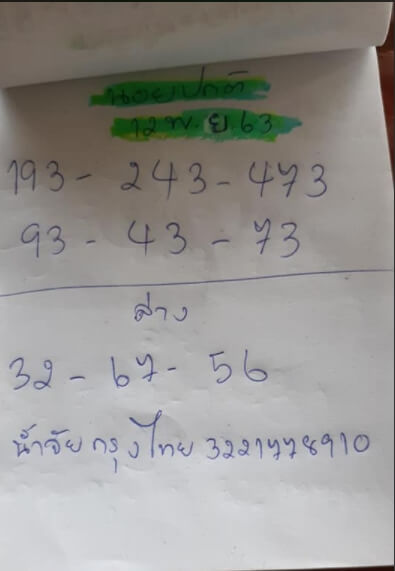 นอยปกติ
12 พ.ย. 63
193 - 243 - 473
93 - 43 - 73
ล่าง
32 - 67 - 56
น้ำจัย กรุงไทย 3221778910